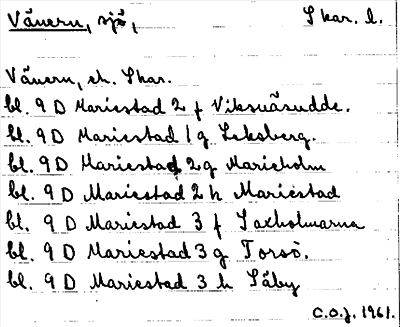 Vänern, sjö, Skar. l.
Vänern, ek. Skar.
bl. 9 D Mariestad 2 f Viksnäsudde.
bl. 9 D Mariestad 1 g Leksberg.
bl. 9 D Mariestad 2 g Marieholm
bl. 9 D Mariestad 2 h Mariestad
bl. 9 D Mariestad 3 f Laxholmarna
bl. 9 D Mariestad 3 g Torsö.
bl. 9 D Mariestad 3 h Säby
C.O.J. 1961.